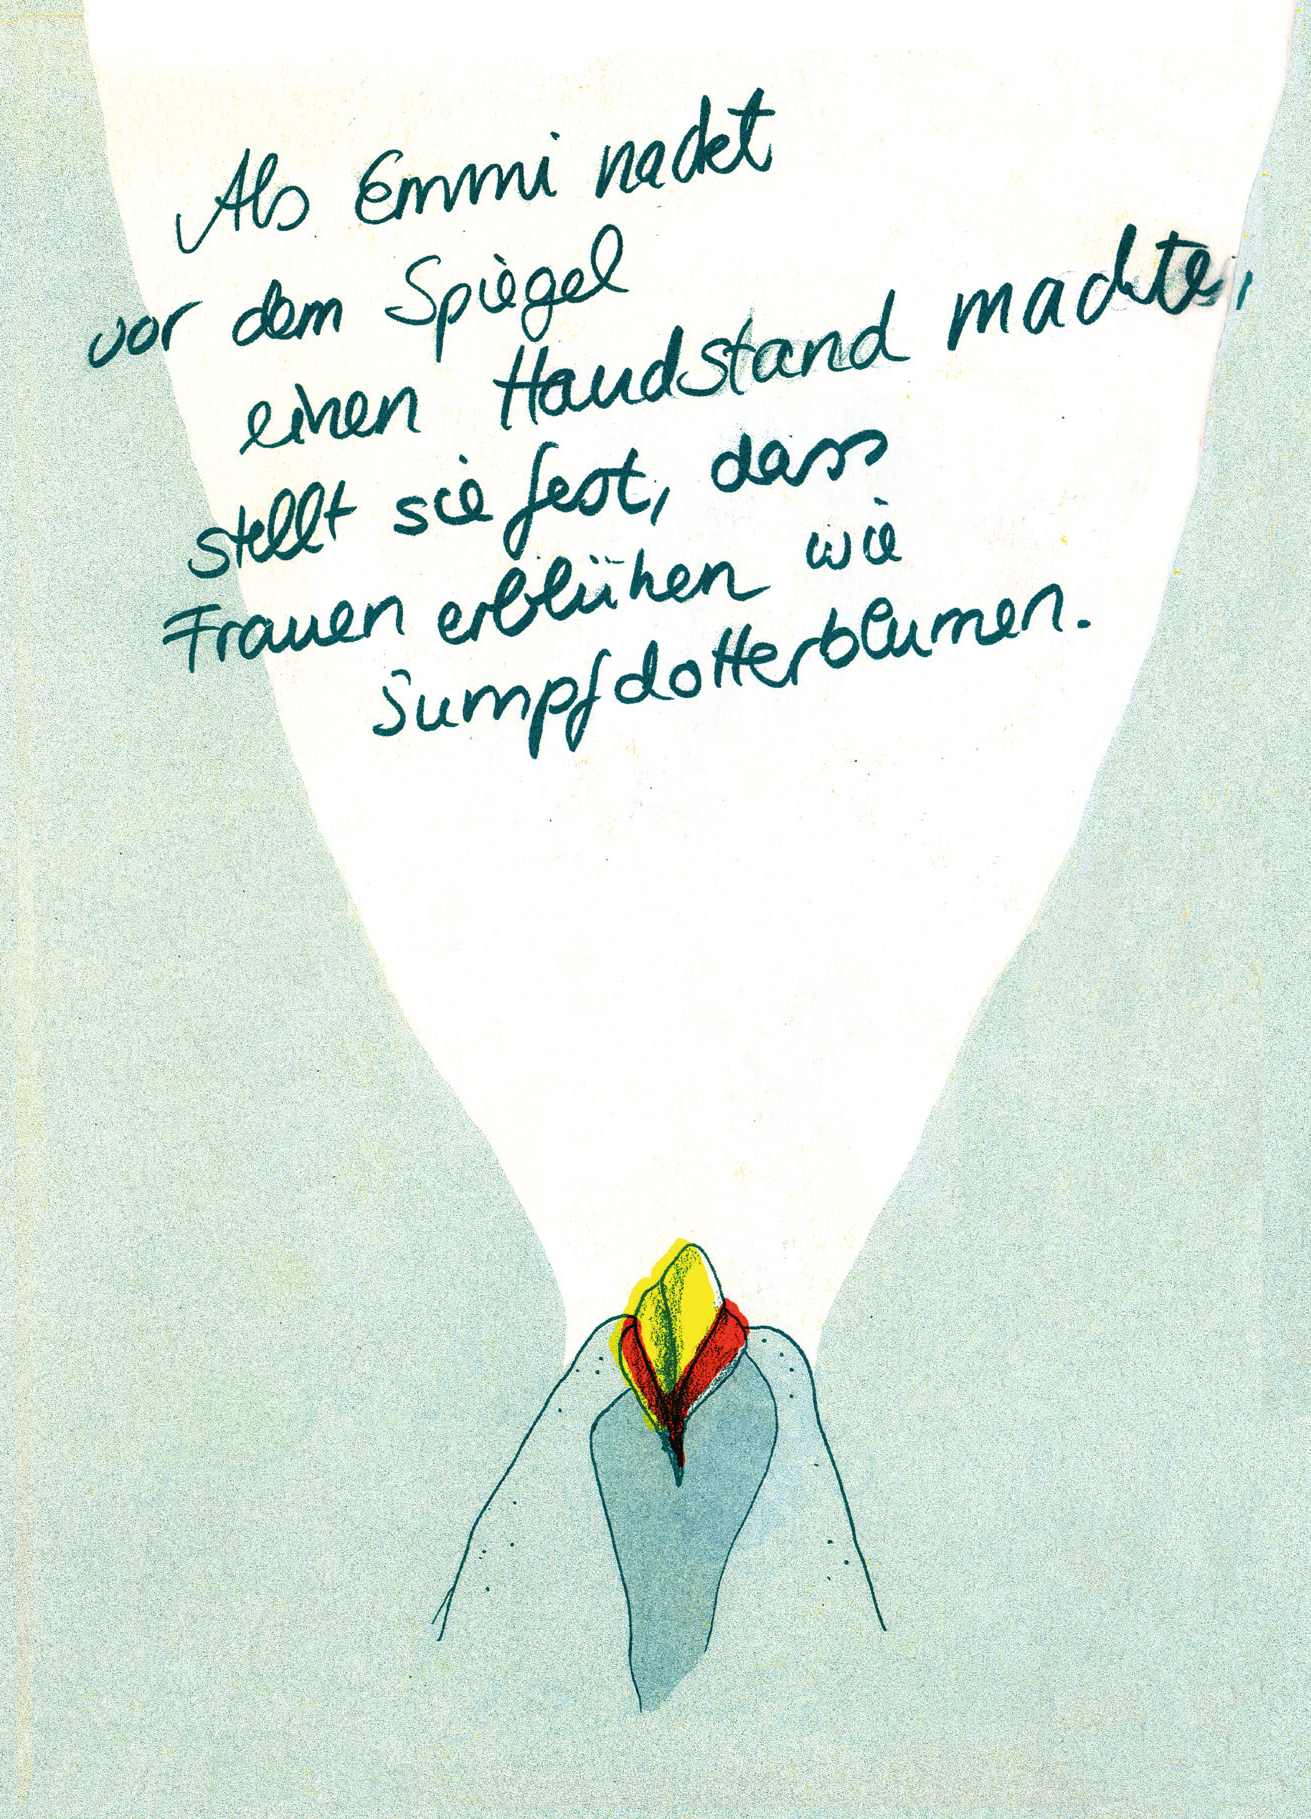 Als Emmi nackt
vor dem Spiegel
einen Handstand machte,
stellt sie fest, dass
Frauen erblühen wie
Sumpfdotterblumen.